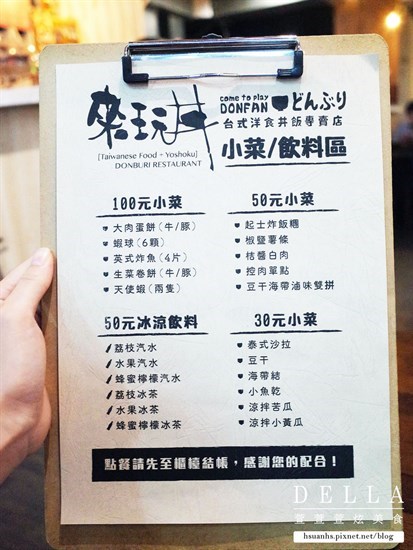 來玩丼
[Taiwanese Food - Yoshoku]
DONBURI RESTAURANT
come to play
DONFAN どんぶり
台式洋食丼飯專賣店
小菜/飲料區
100元小菜
大肉蛋餅(牛/豚)
蝦球(6顆)
英式炸魚(4片)
生菜卷餅(牛/豚)
天使蝦(兩隻)
50元小菜
起士炸飯糰
椒鹽薯條
桔醬白肉
控肉單點
豆干海帶滷味雙拼
50元冰涼飲料
荔枝汽水
水果汽水
蜂蜜檸檬汽水
荔枝冰茶
水果冰茶
蜂蜜檸檬冰茶
30元小菜
泰式沙拉
豆干
海帶結
小魚乾
涼拌苦瓜
涼拌小黃瓜
點餐請先至櫃檯結帳，感謝您的配合！
DELLA
萱萱萱炫美食
hsuanhs.pixnet.net/blog